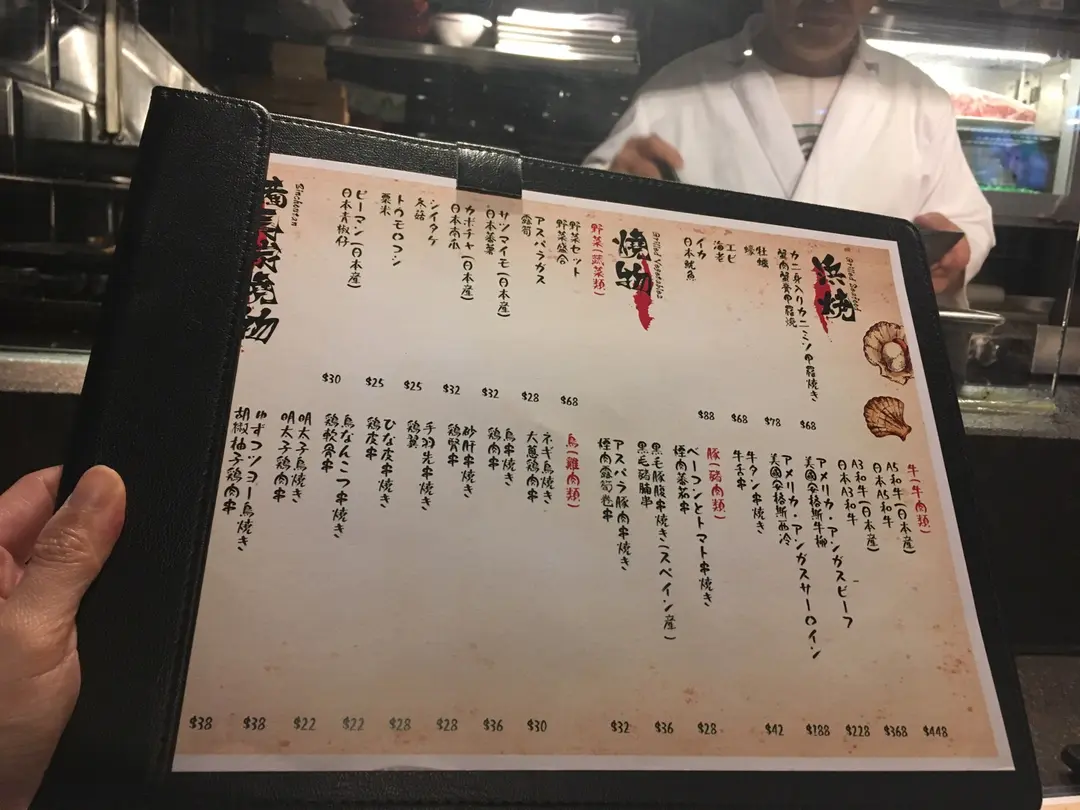 浜燒
Grilled Seafood
カニ身入りカニミソ甲羅焼き
蟹肉蟹膏甲羅燒
$68
牡蠣
蠔
$78
エビ
海老
$68
イカ
日本魷魚
$88
燒物
Grilled Vegetables
野菜(蔬菜類)
野菜セット
野菜盛合
$68
アスパラガス
露筍
$28
サツマイモ(日本産)
日本蕃薯
$32
カボチャ(日本産)
日本南瓜
$32
シイタケ
冬菇
$25
トウモロコシ
粟米
$25
ピーマン(日本産)
日本青椒仔
$30
備長炭燒物
牛(牛肉類)
A5和牛(日本産)
日本A5和牛
$448
A3和牛(日本産)
日本A3和牛
$368
アメリカ・アンガスビーフ
美國安格斯牛柳
$228
アメリカ・アンガスサーロイン
美國安格斯西冷
$188
牛タン串焼き
牛舌串
$42
豚(豬肉類)
ベーコンとトマト串焼き
煙肉蕃茄串
$28
黒毛豚腹串焼き(スペイン産)
黑毛豬腩串
$36
アスパラ豚肉串焼き
煙肉露筍卷串
$32
鳥(雞肉類)
ネギ鳥焼き
大蔥鶏肉串
$30
鳥串焼き
鶏肉串
$36
砂肝串焼き
鶏腎串
$28
手羽先串焼き
鶏翼
$28
ひな皮串焼き
鶏皮串
$22
鳥なんこつ串焼き
鶏軟骨串
$22
明太子鳥焼き
明太子鶏肉串
$38
ゆずコツョー鳥焼き
胡椒柚子鶏肉串
$38